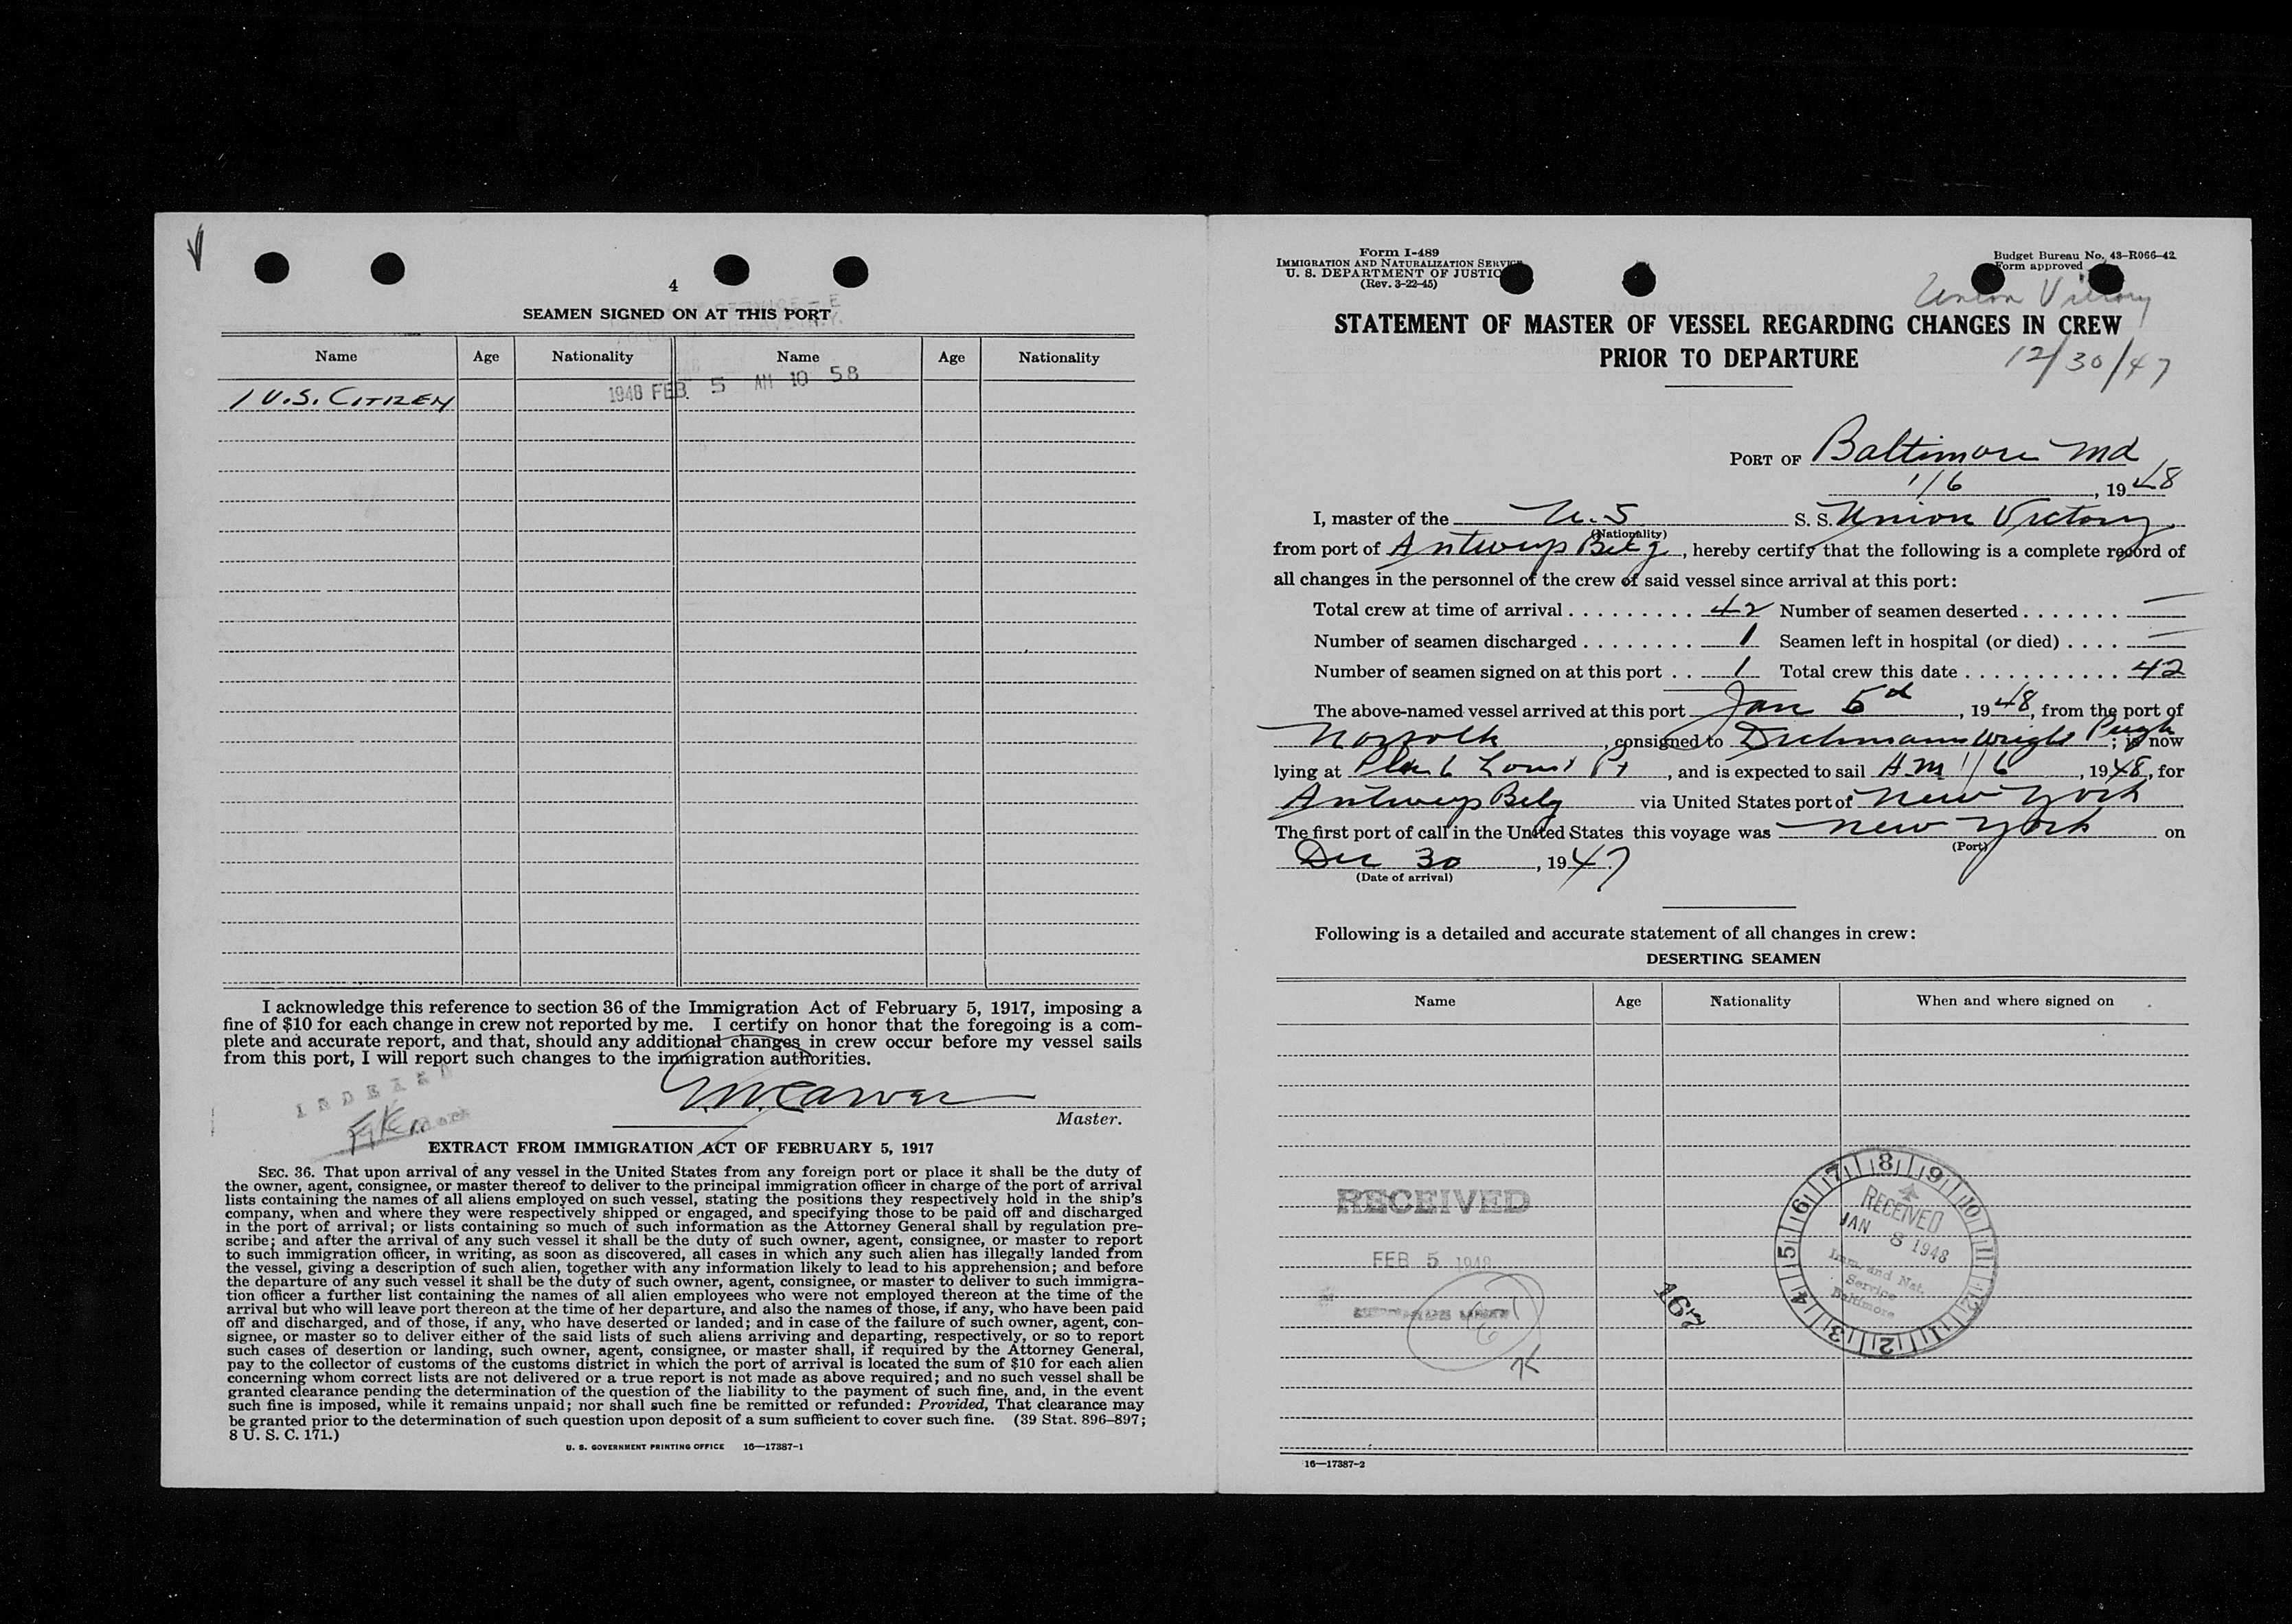 4
SEAMEN SIGNED ON AT THIS PORT
Name Age Nationality Name Age Nationality
1948 FEB. 5 AM 10 58
1 U.S. CITIZEN
I acknowledge this reference to section 36 of the Immigration Act of February 5, 1917, imposing a
fine of $10 for each change in crew not reported by me. I certify on honor that the foregoing is a com-
plete and accurate report, and that, should any additional changes in crew occur before my vessel sails
from this port, I will report such changes to the immigration authorities.
INDEXED
Master.
EXTRACT FROM IMMIGRATION ACT OF FEBRUARY 5, 1917
SEC. 36. That upon arrival of any vessel in the United States from any foreign port or place it shall be the duty of
the owner, agent, consignee, or master thereof to deliver to the principal immigration officer in charge of the port of arrival
lists containing the names of all aliens employed on such vessel, stating the positions they respectively hold in the ship's
company, when and where they were respectively shipped or engaged, and specifying those to be paid off and discharged
in the port of arrival; or lists containing so much of such information as the Attorney General shall by regulation pre-
scribe; and after the arrival of any such vessel it shall be the duty of such owner, agent, consignee, or master to report
to such immigration officer, in writing, as soon as discovered, all cases in which any such alien has illegally landed from
the vessel, giving a description of such alien, together with any information likely to lead to his apprehension; and before
the departure of any such vessel it shall be the duty of such owner, agent, consignee, or master to deliver to such immigra-
tion officer a further list containing the names of all alien employees who were not employed thereon at the time of the
arrival but who will leave port thereon at the time of her departure, and also the names of those, if any, who have been paid
off and discharged, and of those, if any, who have deserted or landed; and in case of the failure of such owner, agent, con-
signee, or master so to deliver either of the said lists of such aliens arriving and departing, respectively, or so to report
such cases of desertion or landing, such owner, agent, consignee, or master shall, if required by the Attorney General,
pay to the collector of customs of the customs district in which the port of arrival is located the sum of $10 for each alien
concerning whom correct lists are not delivered or a true report is not made as above required; and no such vessel shall be
granted clearance pending the determination of the question of the liability to the payment of such fine, and, in the event
such fine is imposed, while it remains unpaid; nor shall such fine be remitted or refunded: Provided, That clearance may
be granted prior to the determination of such question upon deposit of a sum sufficient to cover such fine. (39 Stat. 896–897;
8 U. S. C. 171.)
U. S. GOVERNMENT PRINTING OFFICE 16—17387-1
Form I-489
IMMIGRATION AND NATURALIZATION SERVICE
U. S. DEPARTMENT OF JUSTIC
(Rev. 3-22-45)
Budget Bureau No. 43-R066-42
Form approved
Union Victory
STATEMENT OF MASTER OF VESSEL REGARDING CHANGES IN CREW
PRIOR TO DEPARTURE
12/30/47
PORT OF Baltimore Md
1/6, 1948
I, master of the U.S S. S. Union Victory
(Nationality)
from port of Antwerp Belg, hereby certify that the following is a complete record of
all changes in the personnel of the crew of said vessel since arrival at this port:
Total crew at time of arrival . . . . . . . . . 42 Number of seamen deserted . . . . . . . —
Number of seamen discharged . . . . . . . . 1 Seamen left in hospital (or died) . . . . —
Number of seamen signed on at this port . . 1 Total crew this date . . . . . . . . . . . 42
The above-named vessel arrived at this port Jan 5d, 1948, from the port of
Norfolk, consigned to Wright Pugh; is now
lying at Pt, and is expected to sail AM 1/6, 1948, for
Antwerp Belg via United States port of New York
The first port of call in the United States this voyage was New York on
(Port)
Dec 30, 1947
(Date of arrival)
Following is a detailed and accurate statement of all changes in crew:
DESERTING SEAMEN
Name Age Nationality When and where signed on
RECEIVED
FEB 5 1948
167
7 8 9 10 11 12 1 2 3 4 5 6
RECEIVED
JAN 8 1948
Imm. and Nat.
Service
Baltimore
16—17387-2